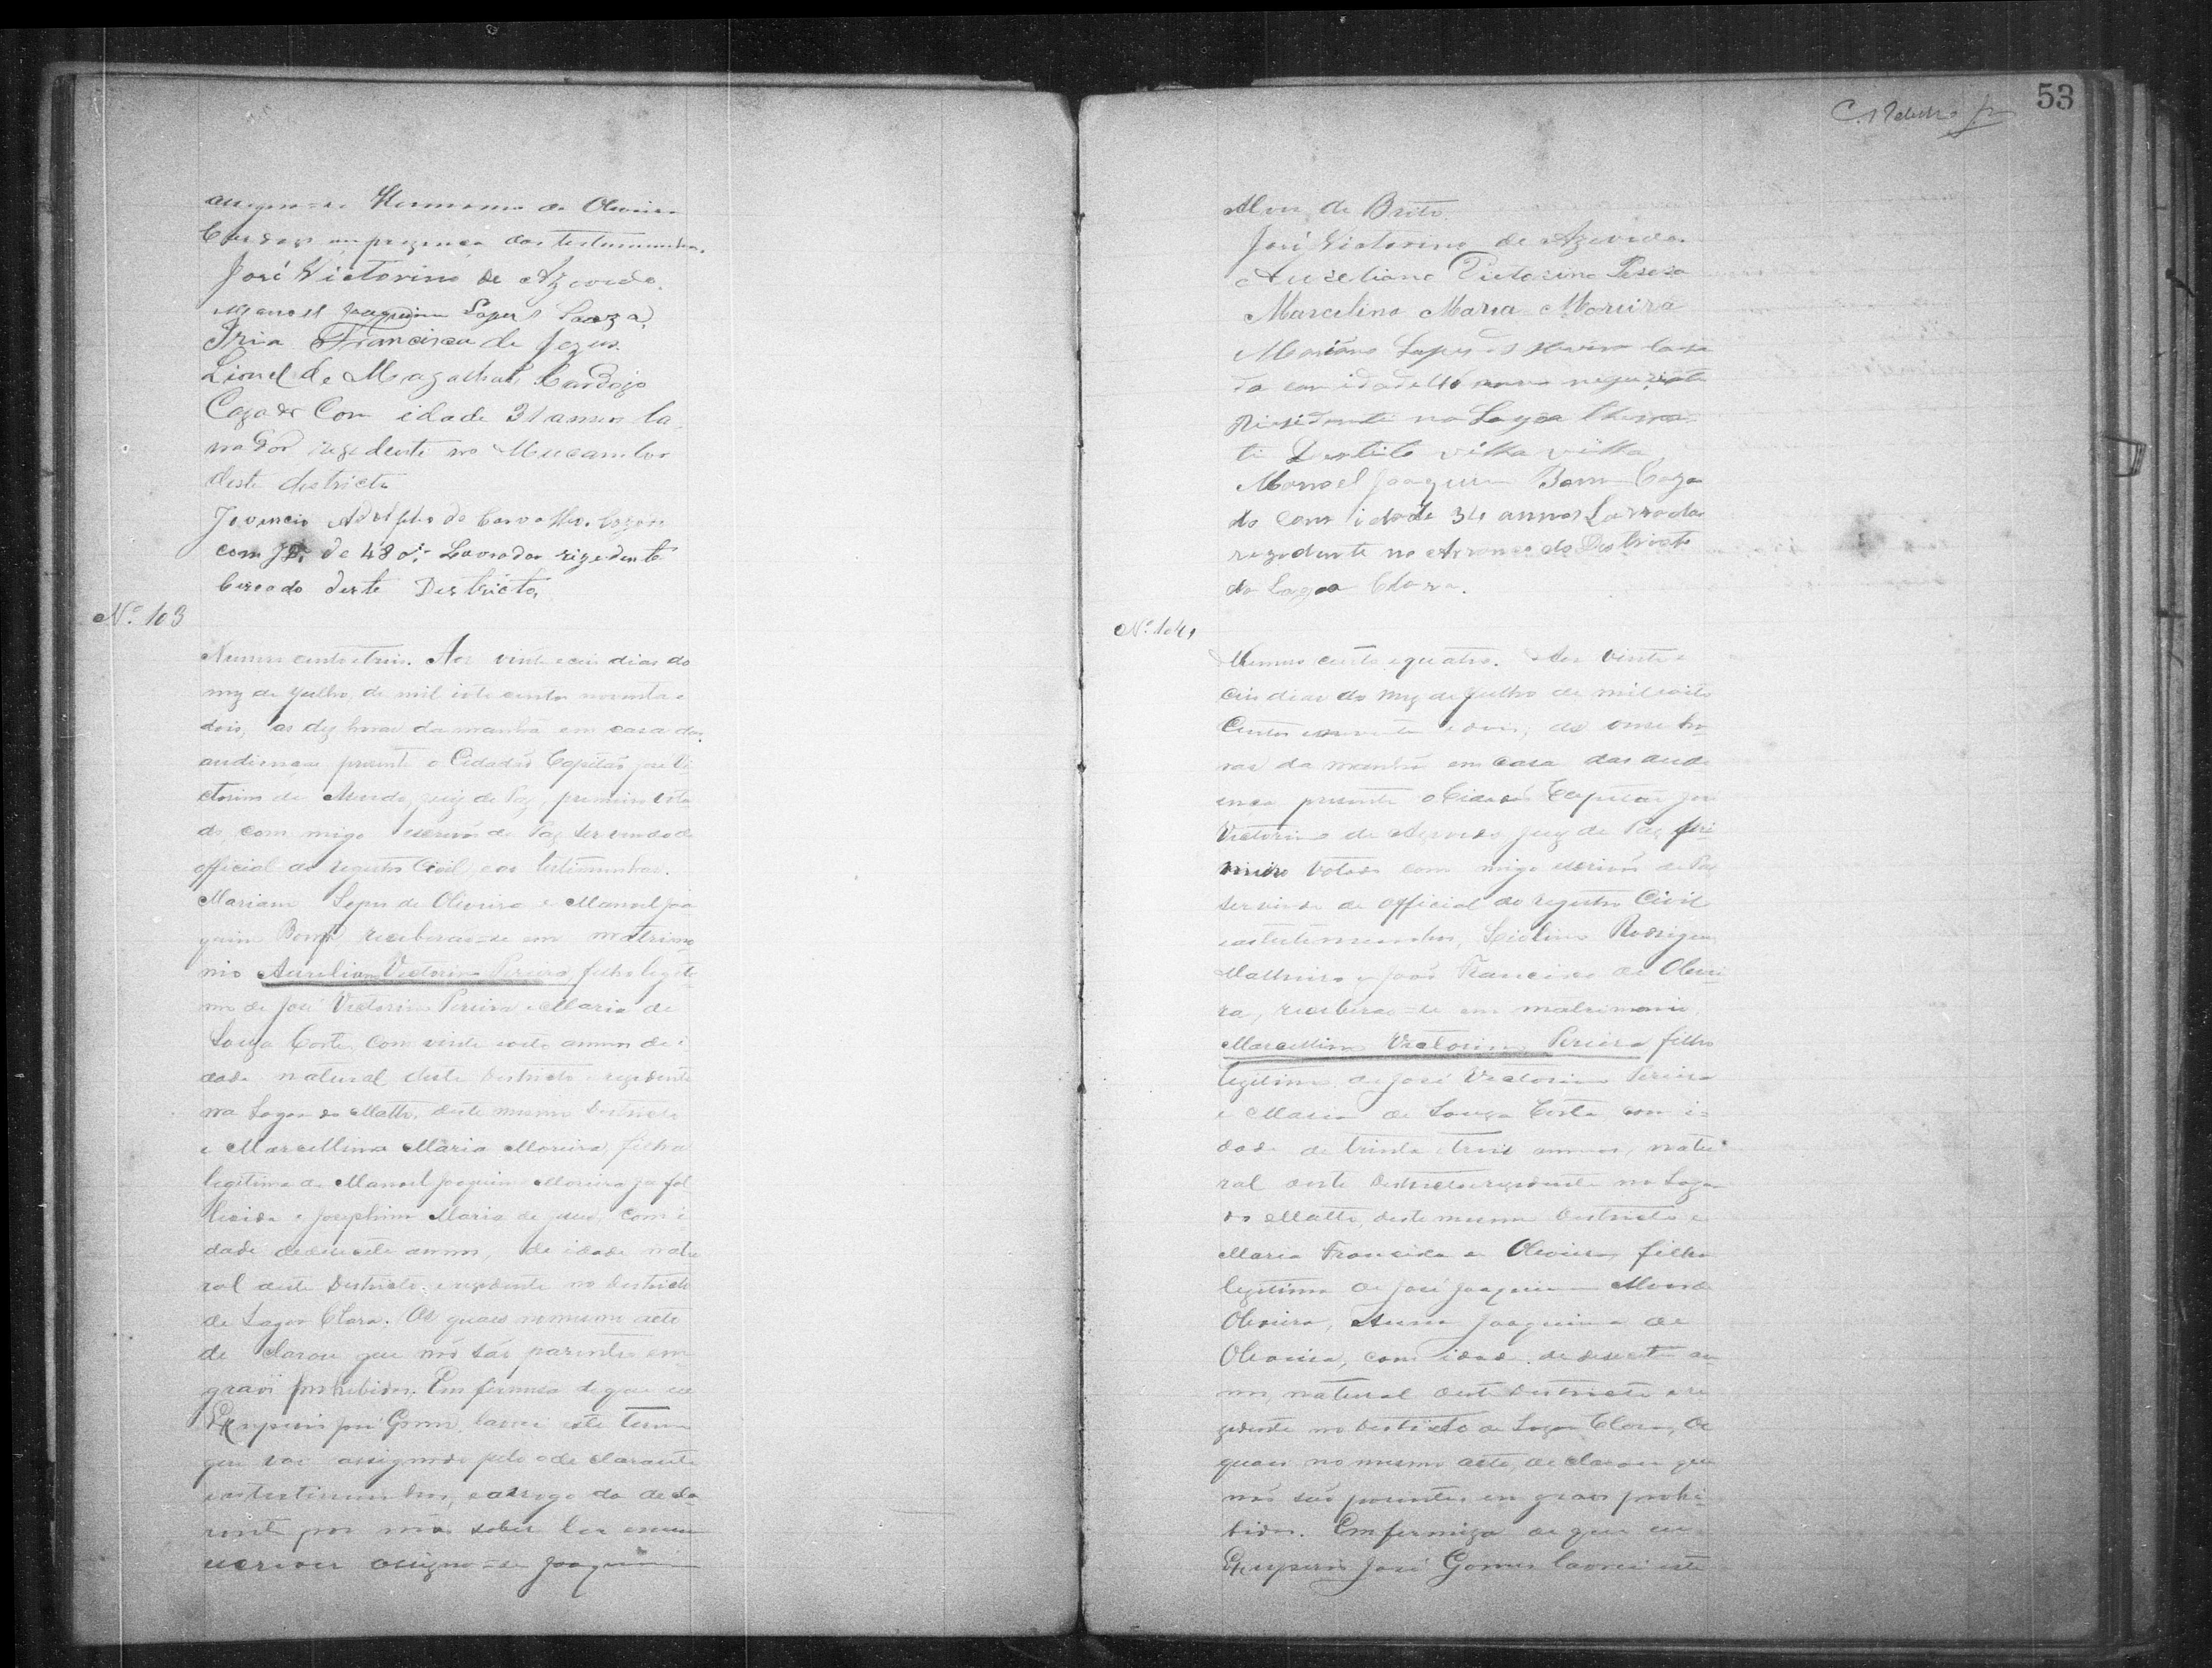 assigna-se Hermano de Oliveira
Cardozo em prezença das testemunhas.
José Victorino de Azevedo.
Manoel Joaquim Lopes Souza
Iria Francisca de Jezus.
Lionel de Magalhais Cardozo
Cazado Com idade 31 annos la
vrador rezedente no Mucambo
deste districto
Juvencio Adolpho de Carvalho. Cazado
com de 48 Lavrador rizedente
Cercado deste Districto,
Nº 103
Numero cento e trez. Aos vinte e ceis dias do
mez de Julho de mil oito centos noventa e
dois, as dez horas da manhã em casa das
audiencias prezente o Cidadão Capitão José Vi
ctorino de Azevedo, juiz de Paz, primeiro vota
do, com migo escrivão de Paz servindo de
official do registro Civil, e as testimunhas.
Mariano Lopes de Oliveira e Manoel Joa
quim Bomfi receberão-se em matrimo
nio Aureliano Victorino Pereira, filho legiti
mo de José Victorino Pereira e Maria de
Souza Costa, Com vinte e oito annos de i
dade natural deste Districto e rezidente
na Lagoa do Matto, deste mesmo Districto
e Marcellina Maria Moreira, filha
legitima de Manoel Joaquim Moreira ja fal
lecido e Josephina Maria de Jezus, com i
dade dedesecete annos, de idade natu
ral deste Districto, e rezidente no Districto
de Lagoa Clara. Os quaes no mesmo acto
de clarou que não são parentes em
graos prohibidos. Em firmeza de que eu
Exuperio José Gomes, lavrei este termo
que vae assignado pelo o de clarante
e as testimunhas, e a rogo da decla
rante por não saber ler e nem
escrever assigna-se Joaquim
53
Alves de Brito.
José Victorino de Azevedo.
Aureliano Victorino Pereira
Marcelina Maria Moreira
Mariano Lopes de Oliveira Caza
do com idade 46 annos negociante
Rezidente na Lagoa Clara
Destrito villa villa
Manoel Joaquim Bomfi Caza
do com idade 34 annos Lavrador
rezedente no do Destricto
da Lagoa Clara.
Nº 104
Numero cento e quatro. Aos vinte e
ceis dias do mez de Julho de mil oito
centos noventa e dois, as onze ho
ras da manhã em casa das audi
encia prezente o Cidadão Capitão José
Victorino de Azevedo, juiz de Paz pri
meiro votado com migo escrivão de Paz
servindo de official do registro Civil
e as testimunhas, Rodrigues
Malheiro e João Francisco de Olivei
ra, receberão-se em matrimonio,
Marcellino Victorino Pereira filho
legitimo de José Victorino Pereira
e Maria de Souza Costa, com i
dade de trinta e trez annos, natu
ral deste Districto e rezidente na Lagoa
do Matto, deste mesmo Districto e
Maria Francisca de Oliveira, filha
legitima de José Joaquim Alves de
Oliveira, Anna Joaquina de
Oliveira, com idade dedesecete an
nos, natural deste Districto e re
zidente no Districto de Lagoa Clara, Os
quaes no mesmo acto, de clarou que
não são parentes em graos prohi
bidos. Em firmeza de que eu
Exuperio José Gomes lavrei este